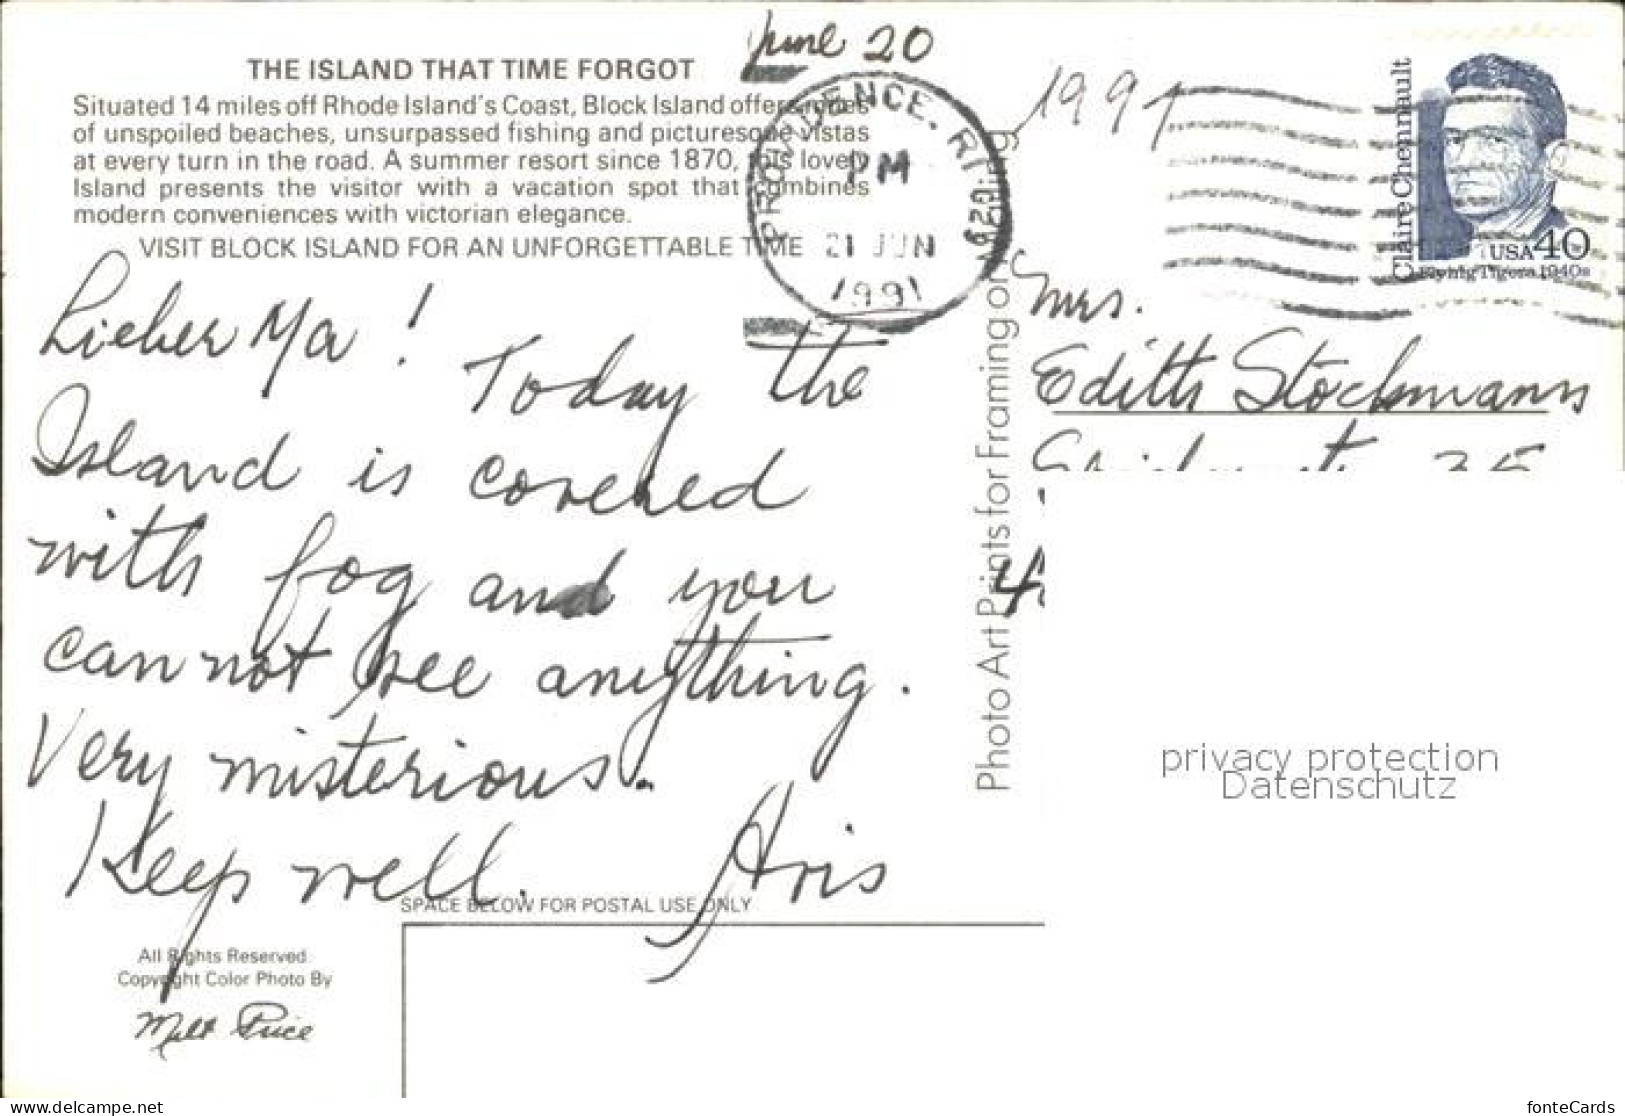 THE ISLAND THAT TIME FORGOT
Situated 14 miles off Rhode Island's Coast, Block Island offers miles
of unspoiled beaches, unsurpassed fishing and picturesque vistas
at every turn in the road. A summer resort since 1870, this lovely
Island presents the visitor with a vacation spot that combines
modern conveniences with victorian elegance.
VISIT BLOCK ISLAND FOR AN UNFORGETTABLE TIME
June 20
1991
PROVIDENCE, RI 029
PM
21 JUN
1991
Claire Chennault
USA 40
Flying Tigers, 1940s
Lieber Ma!
Today the
Island is covered
with fog and you
can not see anything.
Very misterious.
Keep well.
Mrs.
Edith Stockmann
35
4
Photo Art Prints for Framing or Mailing
privacy protection
Datenschutz
SPACE BELOW FOR POSTAL USE ONLY
All Rights Reserved
Copyright Color Photo By
Milt Price
https://www.delcampe.net
fonteCards